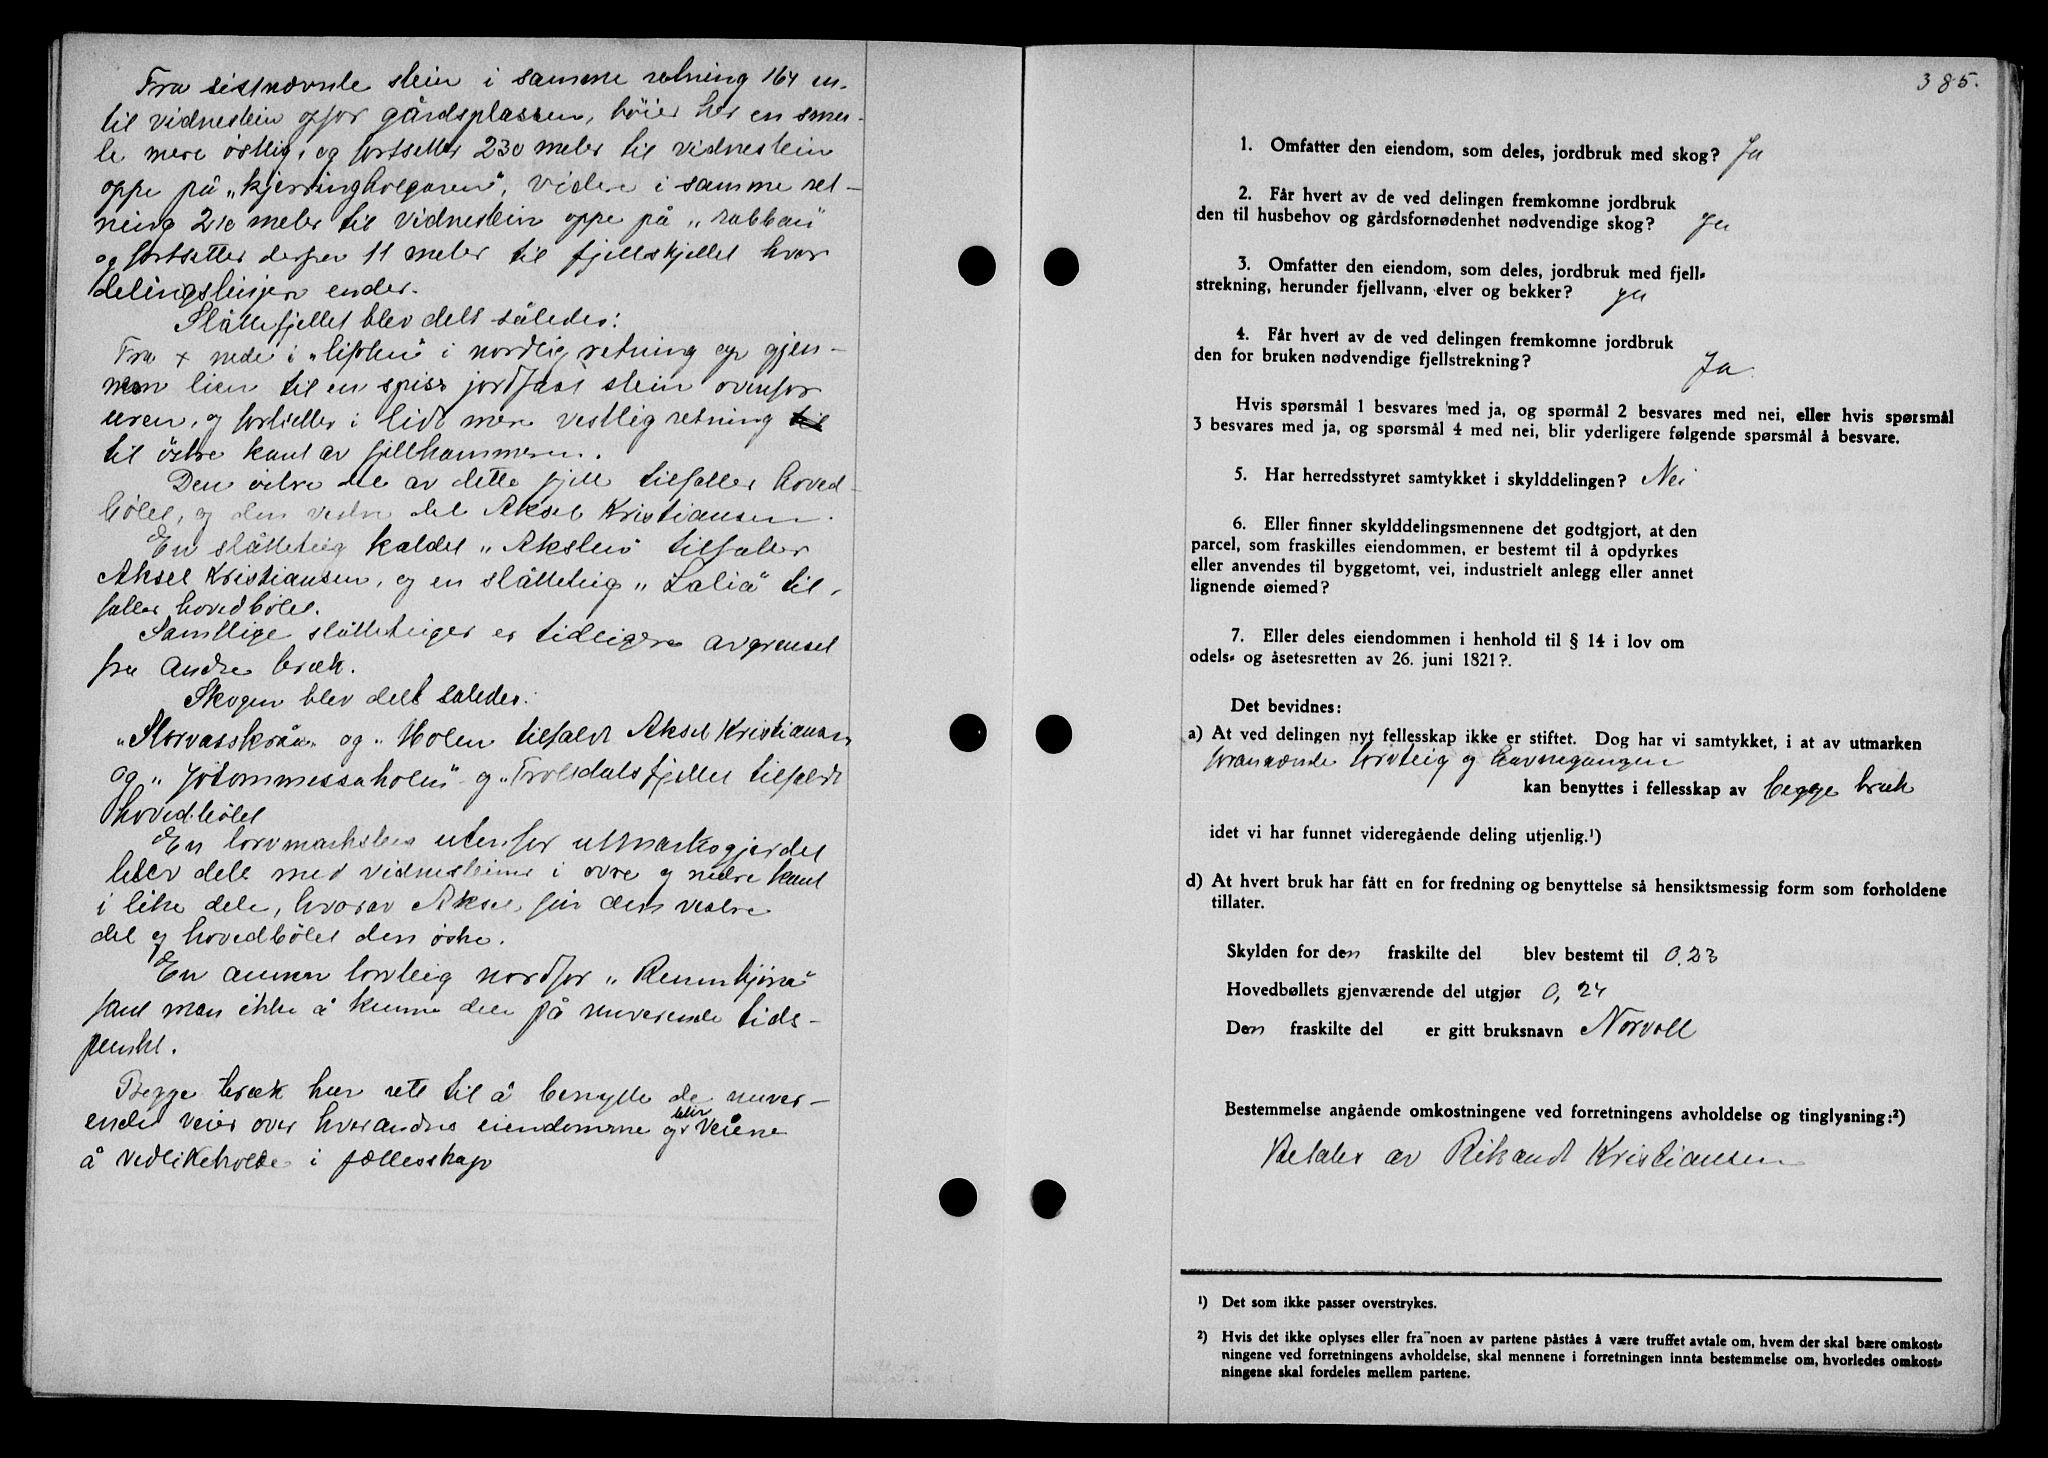 Fra sistnævnte stein i samme retning 164 m.
til vidnestein opfor gårdsplassen, bøier her en smu-
le mere østlig, og fortsetter 230 meter til vidnestein
oppe på "Kjerringholgaren", videre i samme ret-
ning 210 meter til vidnestein oppe på "rabban"
og fortsetter derfra 11 meter til fjellskjellet hvor
delingslinjen ender.
Slåttefjellet blev delt således:
Fra x nede i "lifoten" i nordlig retning op gjen-
nem lien til en spiss jordfast stein ovenfor
uren, og fortsetter i lidt mere vestlig retning til
til østre kant av fjellhammeren.
Den østre del av dette fjell tilfaller hoved-
bølet, og den vestre del Aksel Kristiansen.
En slåtteteig kaldet "Akslen" tilfaler
Aksel Kristiansen, og en slåtteteig "Lalia" til-
faller hovedbølet.
Samtlige slåtteteiger er tidligere avgrenset
fra andre bruk.
Skogen blev delt således:
"Storvasskråa" og "Holen tilfaldt Aksel Kristiansen
og "Jotommessaholen" og "Troldalsfjellet tilfaldt
hovedbølet
En torvmarksteig utenfor utmarksgjerdet
blev delt med vidnesteine i øvre og nedre kant
i like dele, hvorav Aksel får den vestre
del og hovedbølet den østre.
En annen torvteig nordfor "Renntjøna"
fant man ikke å kunne dele på nuverende tids-
punkt.
Begge bruk har rett til å benytte de nuver-
ende veier over hverandres eiendomme og blir veiene
å vedlikeholde i fællesskap
385.
1. Omfatter den eiendom, som deles, jordbruk med skog? Ja
2. Får hvert av de ved delingen fremkomne jordbruk
den til husbehov og gårdsfornødenhet nødvendige skog? Ja
3. Omfatter den eiendom, som deles, jordbruk med fjell-
strekning, herunder fjellvann, elver og bekker? Ja
4. Får hvert av de ved delingen fremkomne jordbruk
den for bruken nødvendige fjellstrekning? Ja.
Hvis spørsmål 1 besvares med ja, og spørmål 2 besvares med nei, eller hvis spørsmål
3 besvares med ja, og spørsmål 4 med nei, blir yderligere følgende spørsmål å besvare.
5. Har herredsstyret samtykket i skylddelingen? Nei
6. Eller finner skylddelingsmennene det godtgjort, at den
parcel, som fraskilles eiendommen, er bestemt til å opdyrkes
eller anvendes til byggetomt, vei, industrielt anlegg eller annet
lignende øiemed?
7. Eller deles eiendommen i henhold til § 14 i lov om
odels- og åsetesretten av 26. juni 1821?.
Det bevidnes:
a) At ved delingen nyt fellesskap ikke er stiftet. Dog har vi samtykket, i at av utmarken
forannevnte torvteig og havnegangen
kan benyttes i fellesskap av begge bruk
idet vi har funnet videregående deling utjenlig.¹)
d) At hvert bruk har fått en for fredning og benyttelse så hensiktsmessig form som forholdene
tillater.
Skylden for den fraskilte del blev bestemt til 0,23
Hovedbøllets gjenværende del utgjør 0,24
Den fraskilte del er gitt bruksnavn Norvoll
Bestemmelse angående omkostningene ved forretningens avholdelse og tinglysning:²)
Betales av Rikandt Kristiansen
¹) Det som ikke passer overstrykes.
²) Hvis det ikke oplyses eller fra noen av partene påståes å være truffet avtale om, hvem der skal bære omkost-
ningene ved forretningens avholdelse, skal mennene i forretningen innta bestemmelse om, hvorledes omkost-
ningene skal fordeles mellem partene.